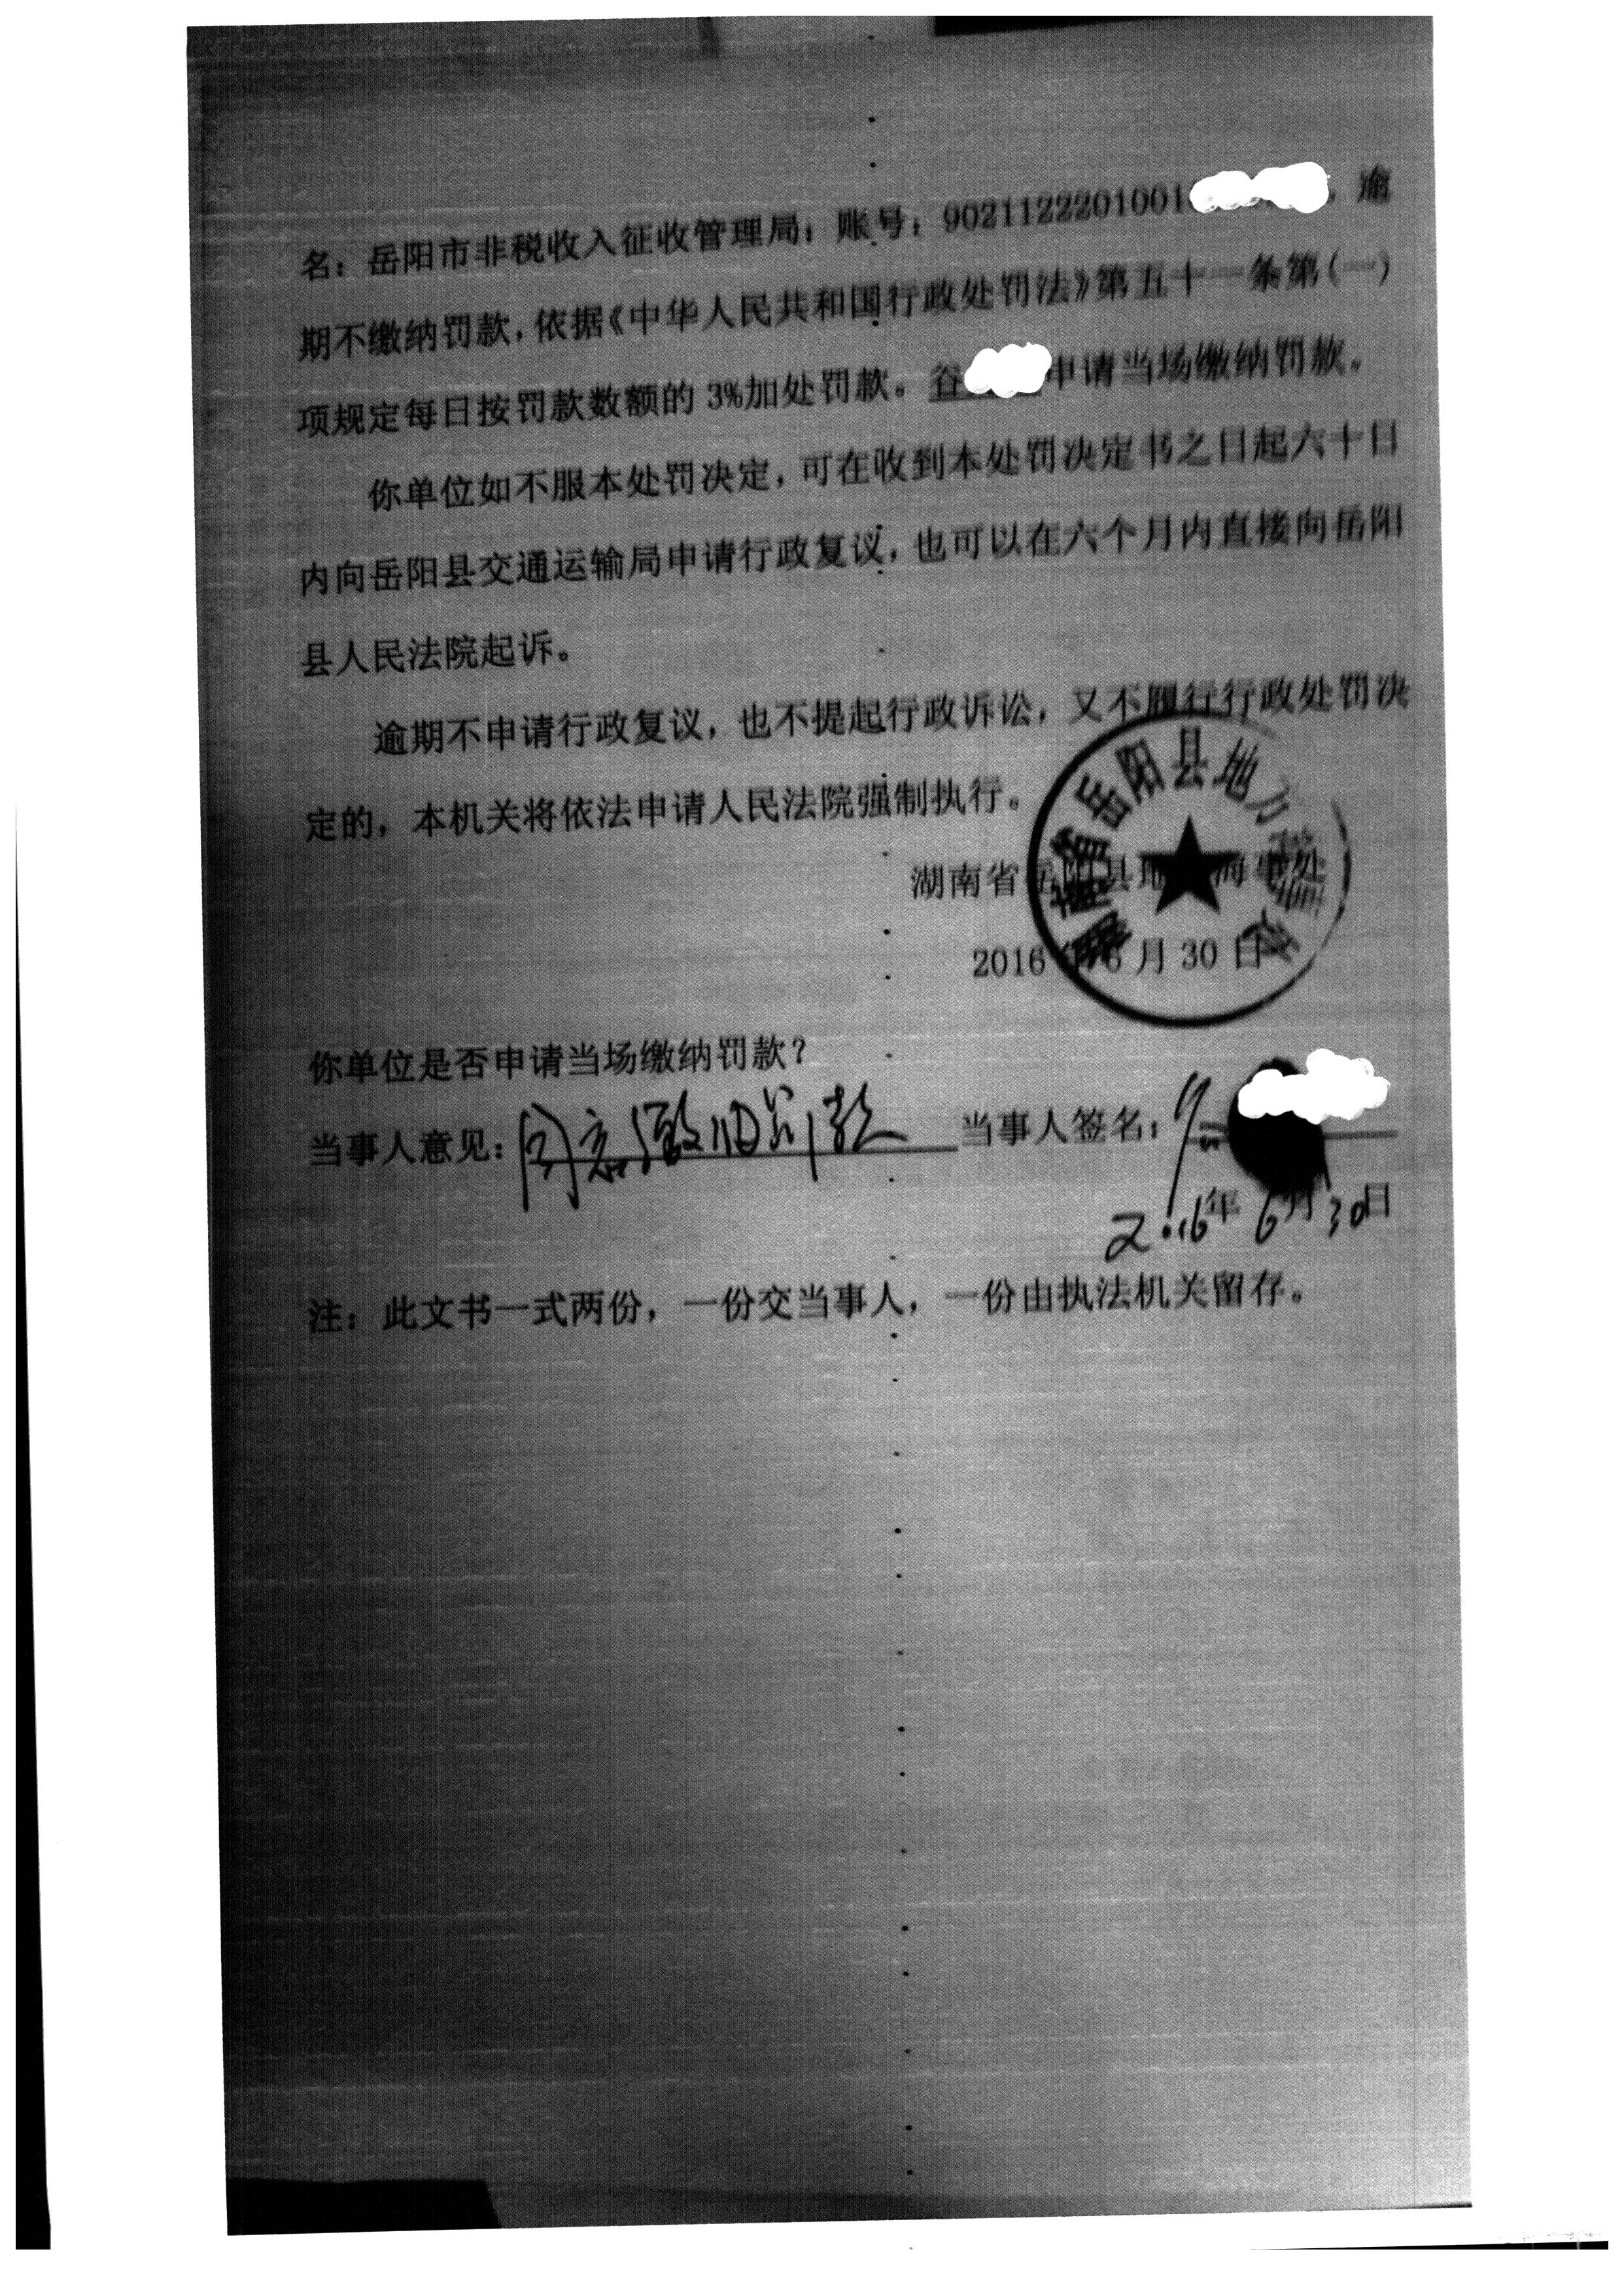 名：岳阳市非税收入征收管理局；账号：9021122201001，逾
期不缴纳罚款，依据《中华人民共和国行政处罚法》第五十一条第(一)
项规定每日按罚款数额的 3%加处罚款。谷申请当场缴纳罚款。
你单位如不服本处罚决定，可在收到本处罚决定书之日起六十日
内向岳阳县交通运输局申请行政复议，也可以在六个月内直接向岳阳
县人民法院起诉。
逾期不申请行政复议，也不提起行政诉讼，又不履行行政处罚决
定的，本机关将依法申请人民法院强制执行。
湖南省岳阳县地方海事处
湖南省岳阳县地方海事处
2016 年 6 月 30 日
你单位是否申请当场缴纳罚款？
当事人意见：同意缴纳罚款 当事人签名：
2016年 6月 30日
注：此文书一式两份，一份交当事人，一份由执法机关留存。